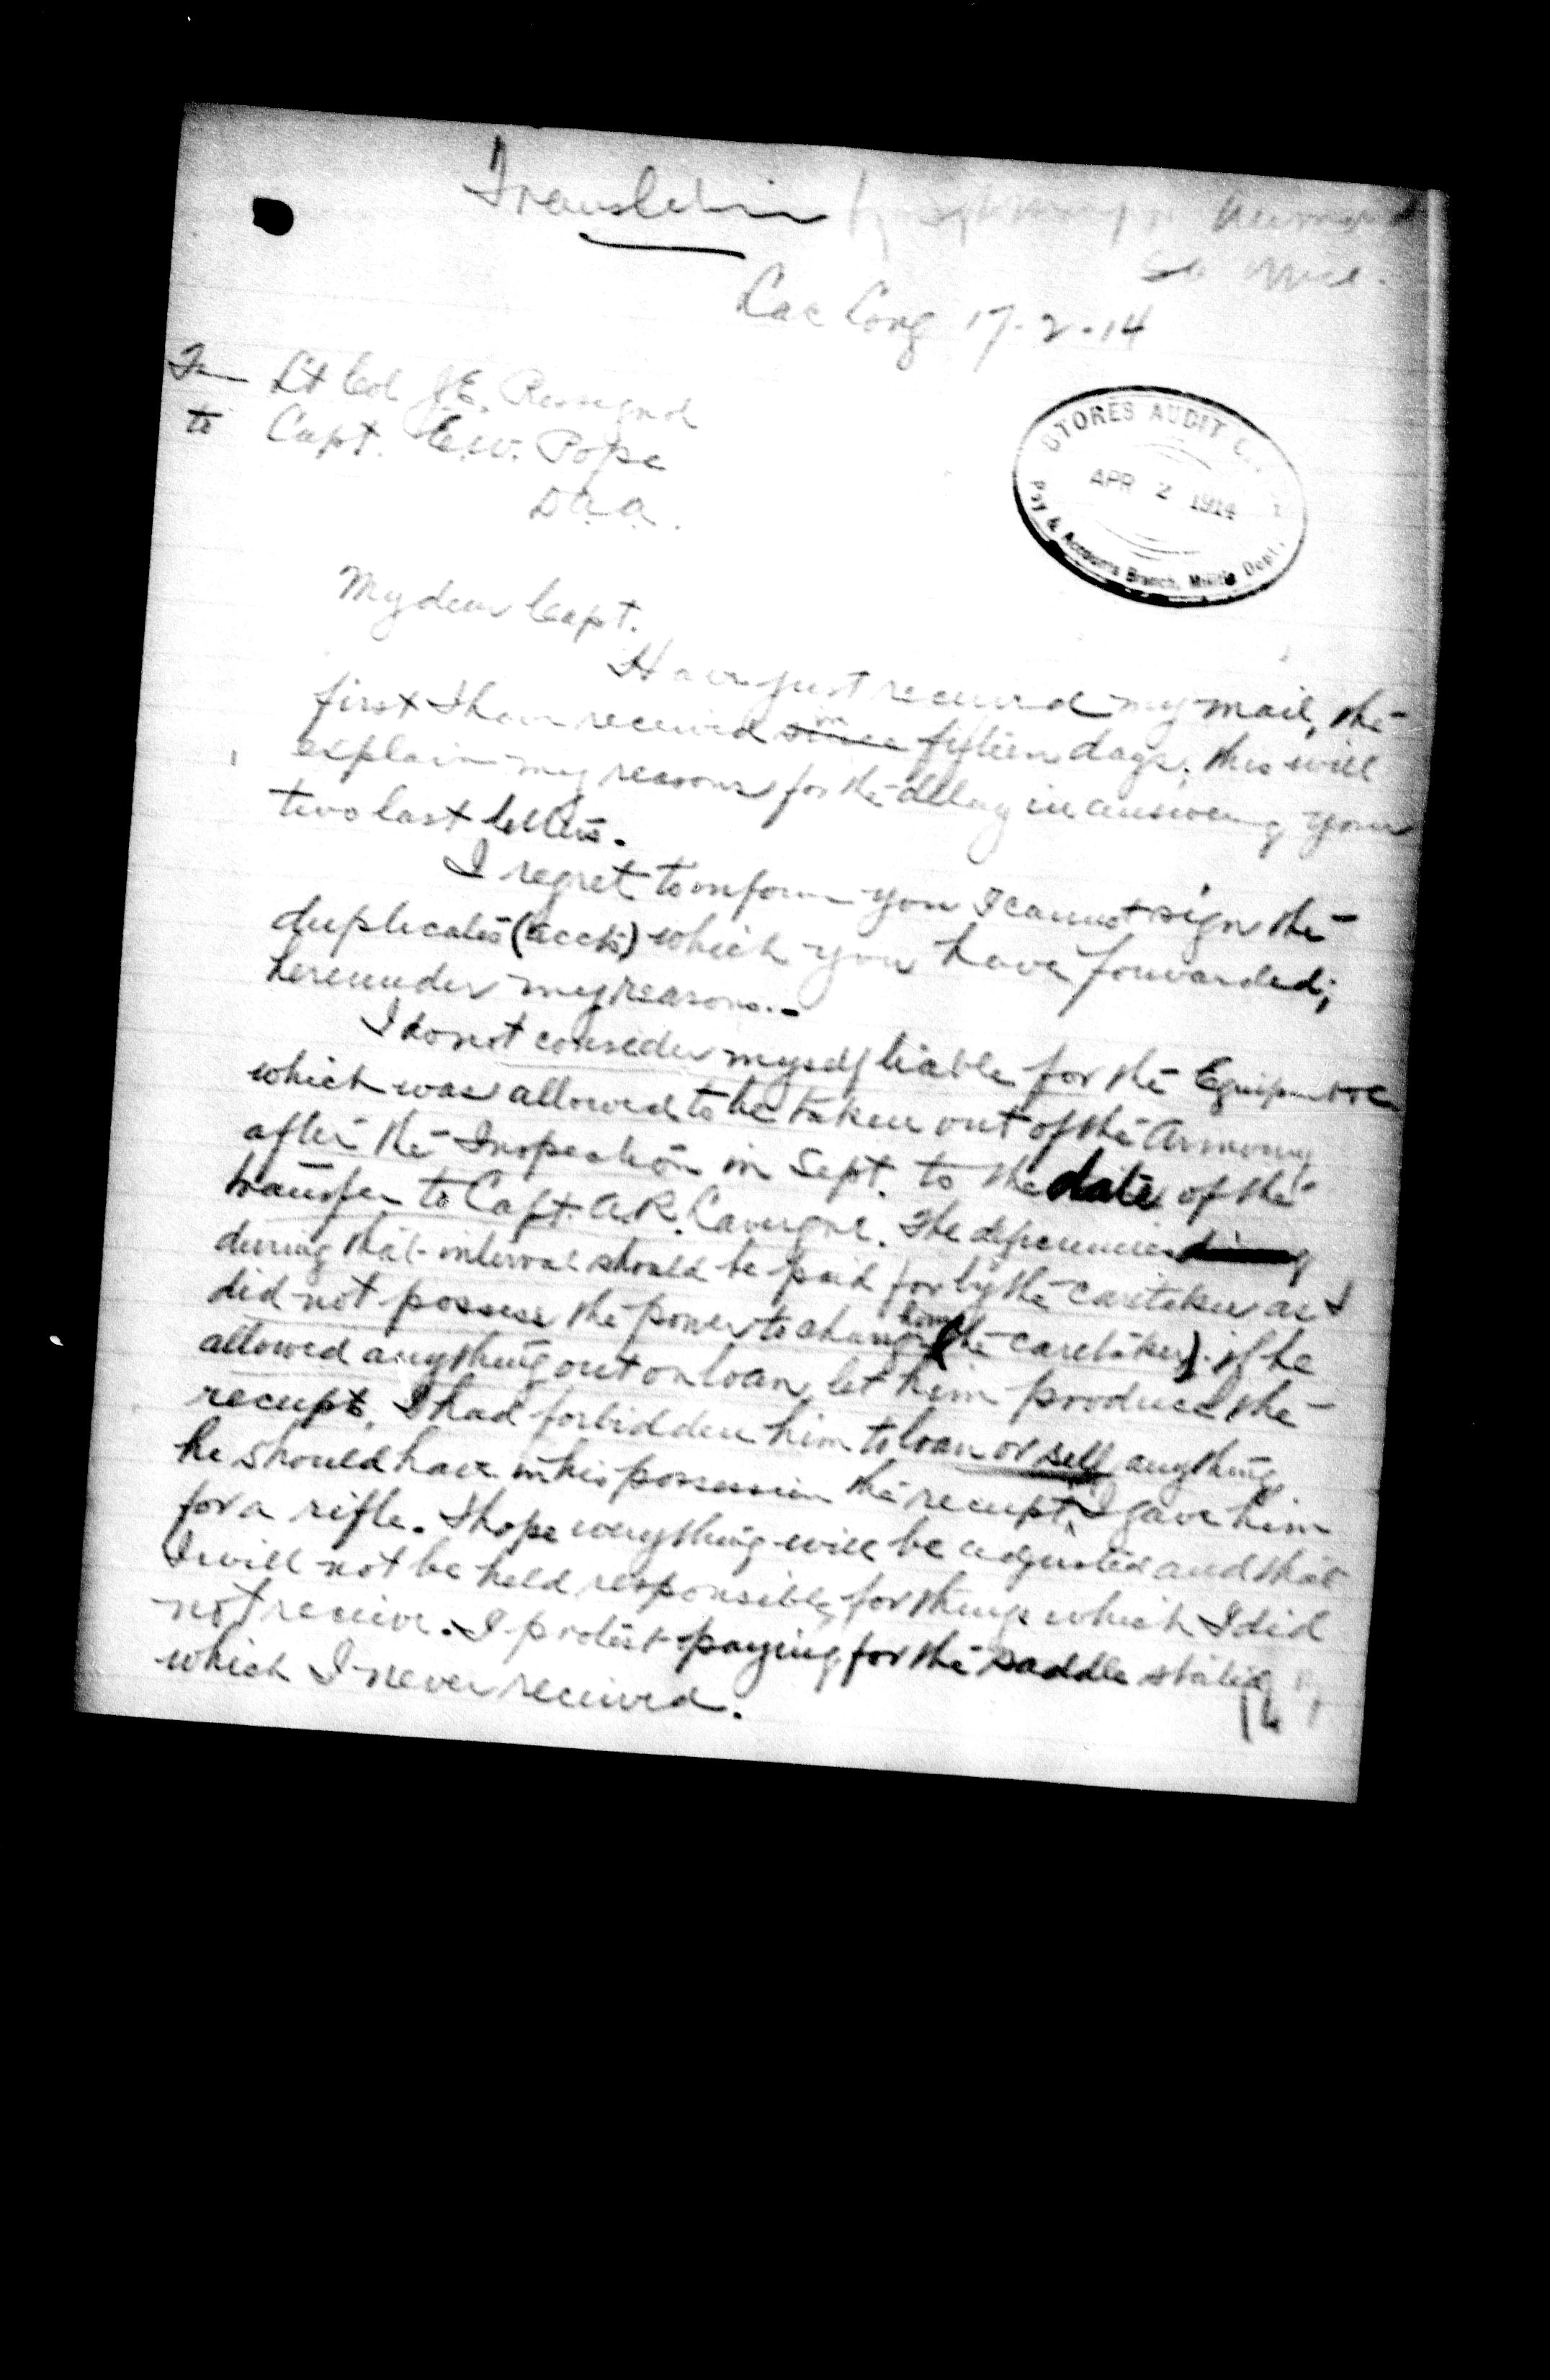 Translation by
Lac Long 17-2-14
Fm Lt Col J.E. Rossignol
to Capt. E.W. Pope
D.a.a.
STORES AUDIT
APR 2 1914
Pay & Accounts Branch, Militia Dept.
My dear Capt.
Have just received my mail, the
first I have received since in fifteen days; this will
explain my reasons for the delay in answering your
two last letters.
I regret to inform you I cannot sign the
duplicates (accts) which you have forwarded;
hereunder my reasons.-
I do not consider myself liable for the Equipmt &c
which was allowed to be taken out of the Armoury
after the Inspection in Sept. to the date of the
transfer to Capt. A.R. Lavergne. The deficiencies
during that interval should be paid for by the caretaker as I
did not possess the power to change him (the caretaker). if he
allowed anything out on loan, let him produce the
receipt. I had forbidden him to loan or sell anything
he should have in his possession the receipt, I gave him
for a rifle. I hope everything will be adjusted and that
I will not be held responsible, for things which I did
not receive. I protest paying for the saddle
which I never received.